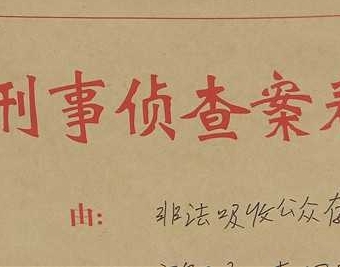 刑事侦查案
由: 非法吸收公众存